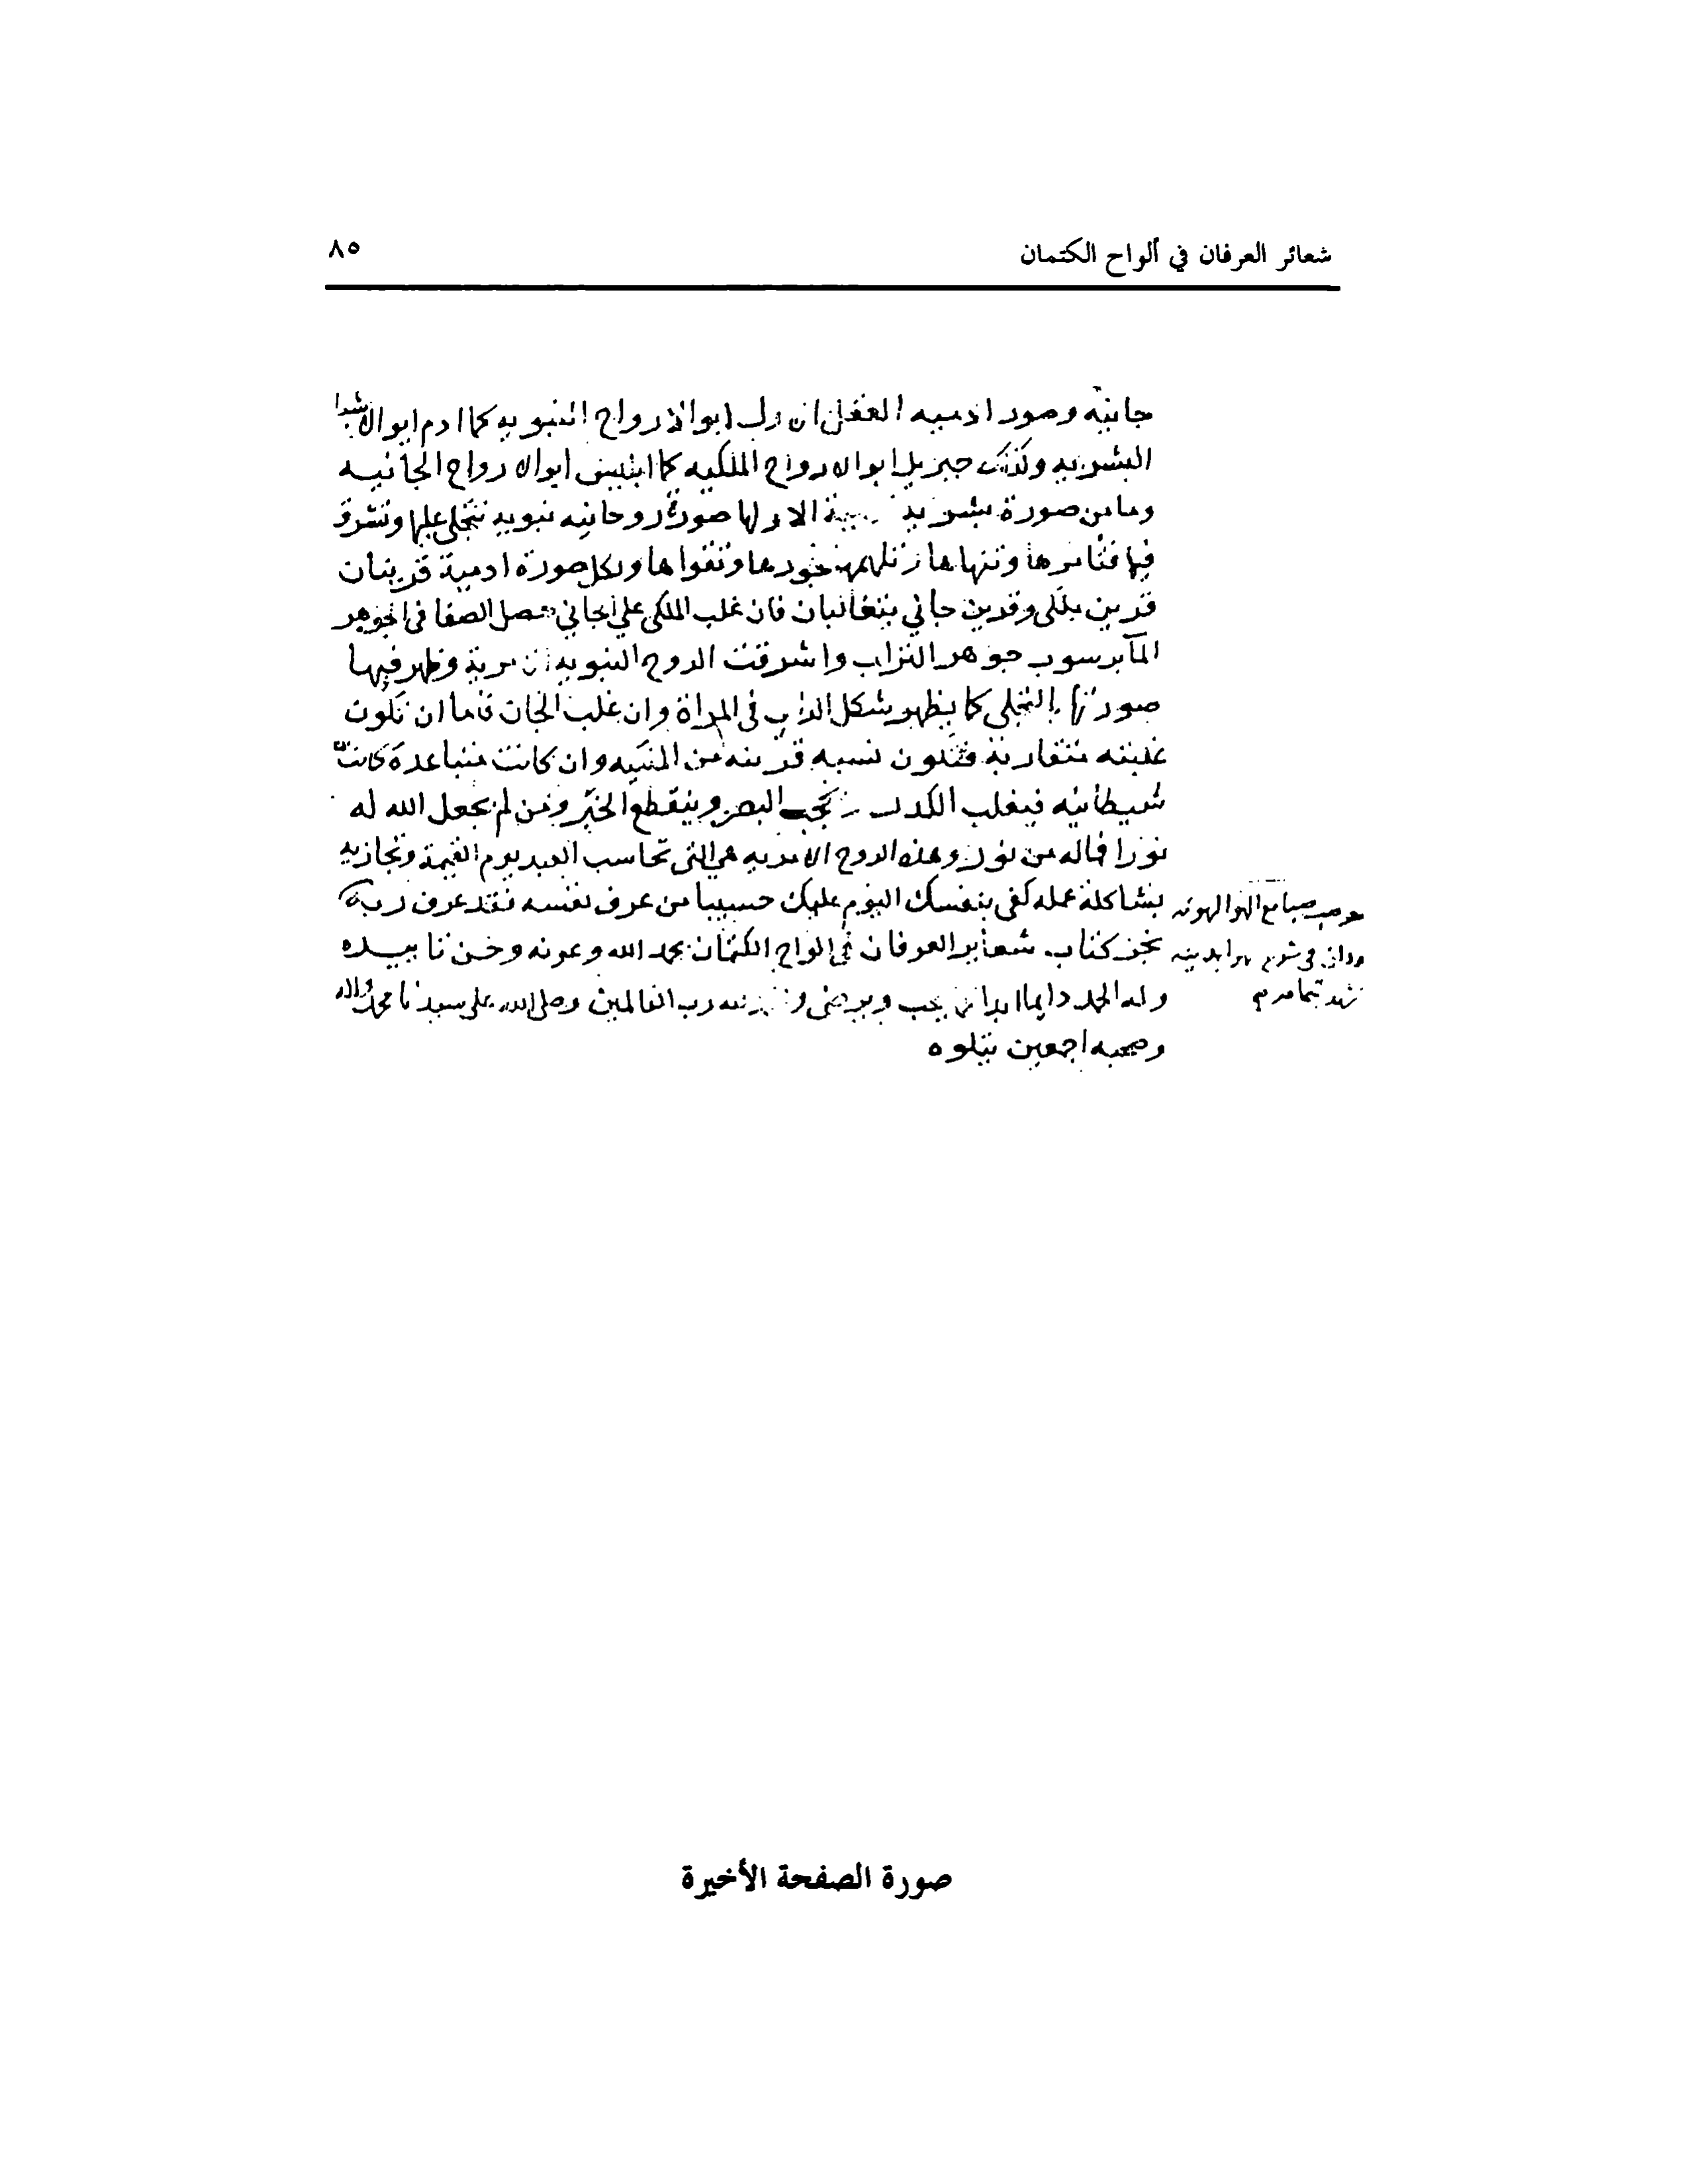 شعائر العرفان في ألواح الكتمان
٨٥
جانية وصور ادمية العقل ابو الارواح النبويه كما ادم ابو
البشريه وكذلك جبريل ابو الارواح الملكيه كما ابليس ابو الارواح الجانيه
وما من صورة بشريه الا ولها صورة روحانيه نبويه تتجلى عليها وتشرق
فيها فتامرها وتنهاها وتلهمها فجورها وتقواها ولكل صورة ادمية قرينان
قرين ملكى وقرين جاني يتغالبان فان غلب الملكى على الجاني حصل الصفا في الجوهر
جوهر التراب واشرقت الروح النبويه وظهر فيها
صورتها بالتجلى كما يظهر شكل في المراة وان غلب الجان فاما ان تكون
غلبته متقاربة فتكون نسبه قرينه من وان كانت متباعدة كانت
شيطانيه فيغلب الكدر البصر وينقطع الخبر ومن لم يجعل الله له
نورا فماله من نور وهذه الروح الامريه هي التى تحاسب العبد يوم القيمة وتجازيه
بشاكلة عمله كفى بنفسك اليوم عليك حسيبا من عرف نفسه فقد عرف ربه
نجز كتاب شعاير العرفان في الواح الكتمان بحمد الله وعونه
وله الحمد دايما ابدا يحب ويرضى رب العالمين وصلى الله على سيدنا محمد واله
وصحبه اجمعين يتلوه
صورة الصفحة الأخيرة